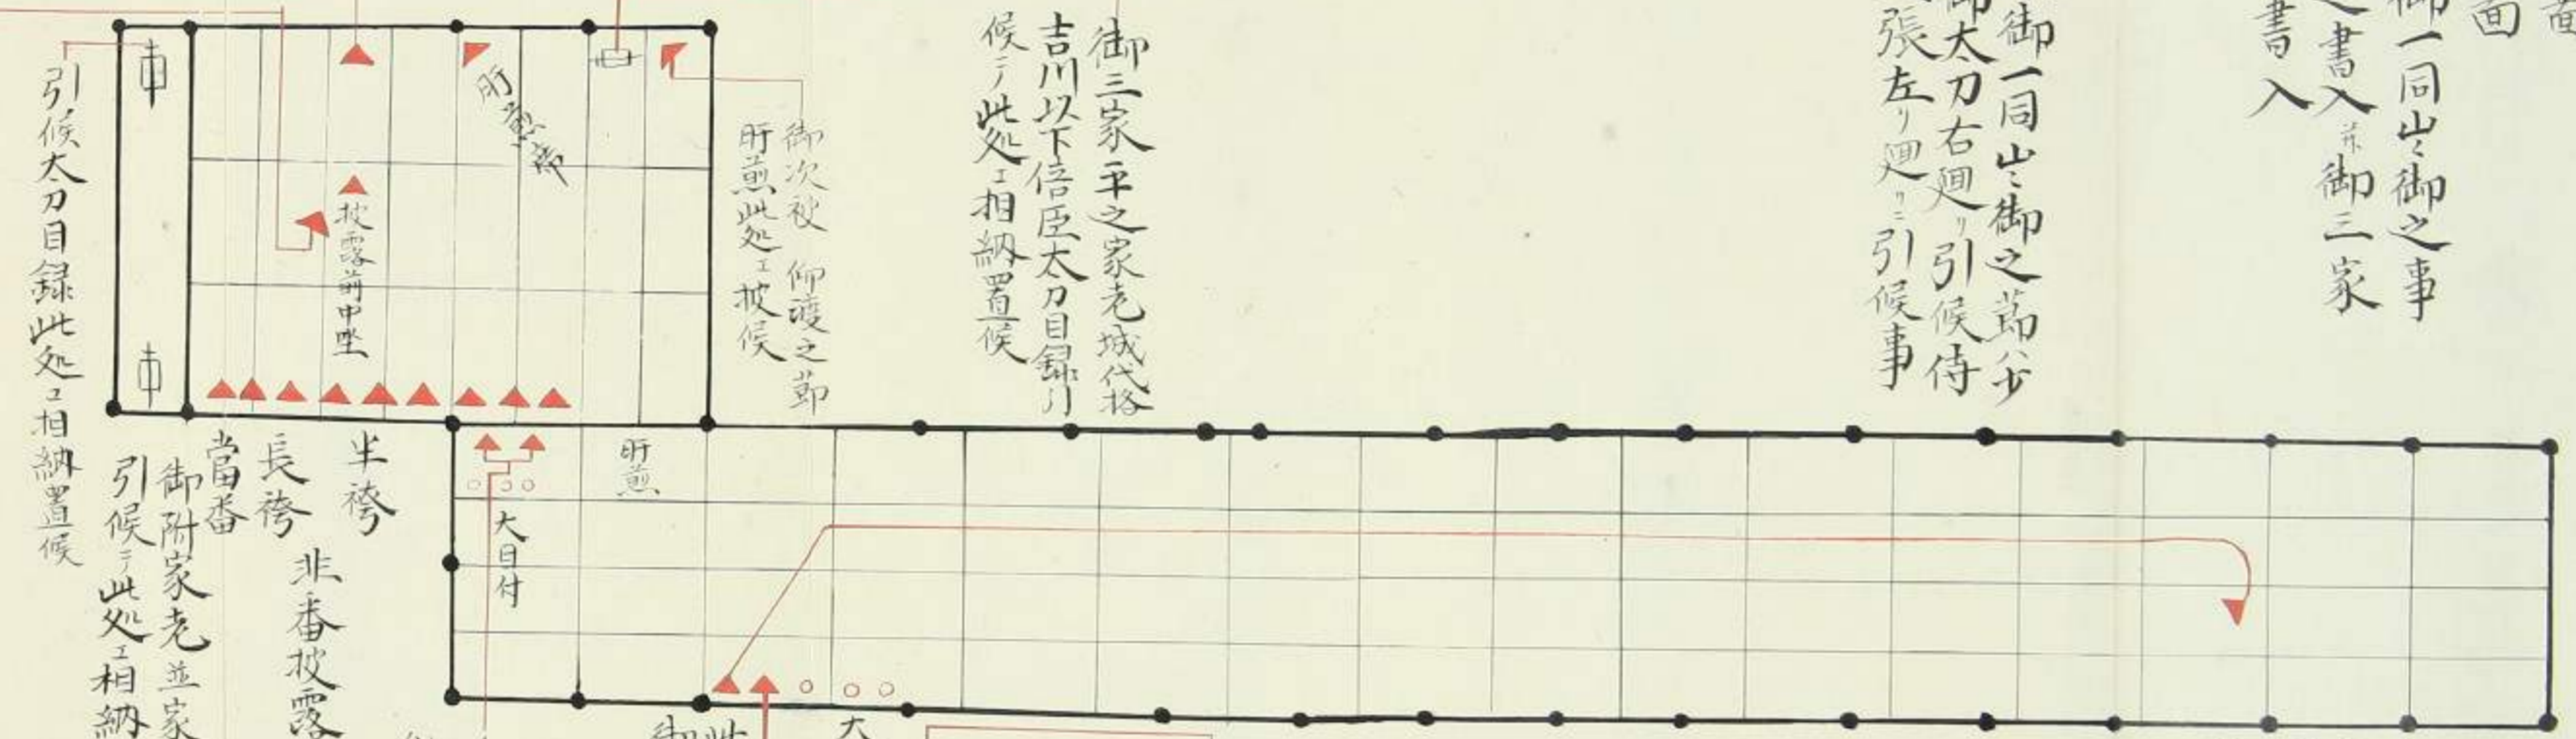 面
面
御一同出御之事
之書入并御三家
書入
御一同出御之節ハ少
御太刀右廻リ引候侍
張左リ廻リニ引候事
御三家平之家老城代格
吉川以下倍臣太刀目録引
候テ此処エ相納置候
御次被 仰渡之節
肝煎此処エ披候
肝煎席
披露前中坐
引候太刀目録此処エ相納置候
肝煎
大目付
半袴
長袴
當番
非番披露
御附家老並家
引候テ此処エ相納
大